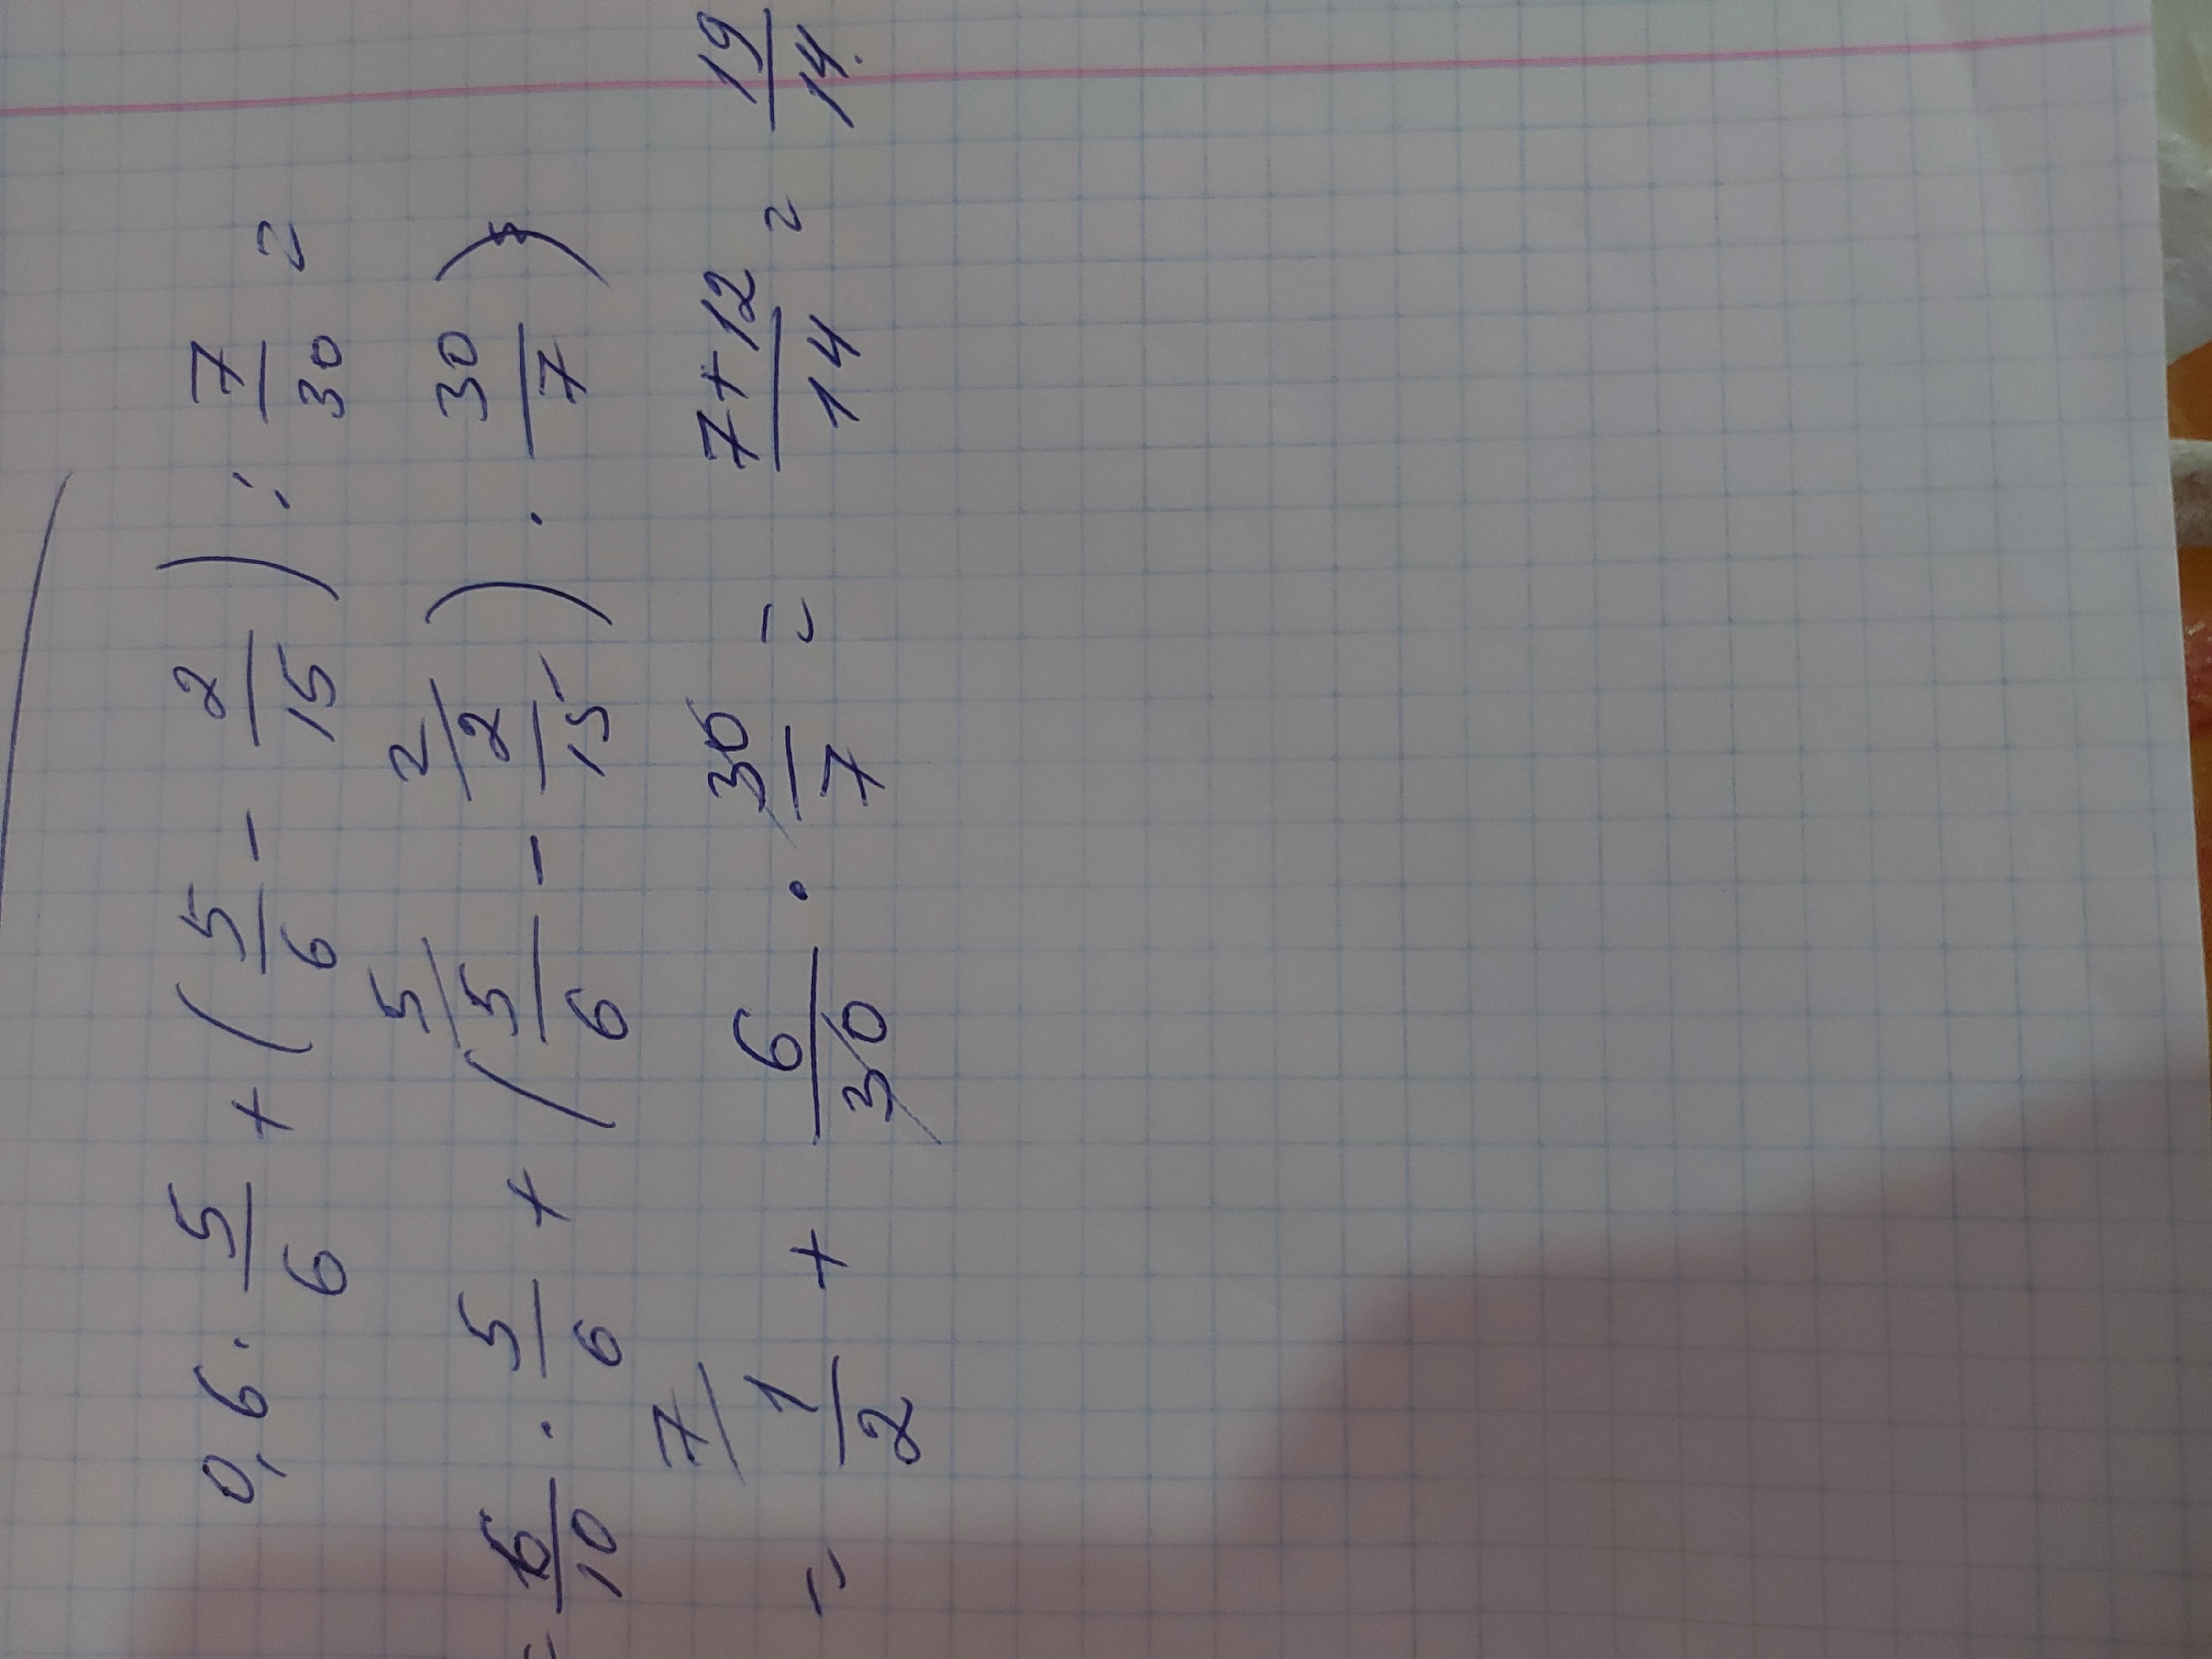 0,6 · 5/6 + (5/6 - 2/15) : 7/30 =
= 6/10 · 5/6 + (5/ 5/6 - 2/ 2/15) · 30/7) =
= 7/ 1/2 + 6/30 · 30/7 = 7+12/14 = 19/14.